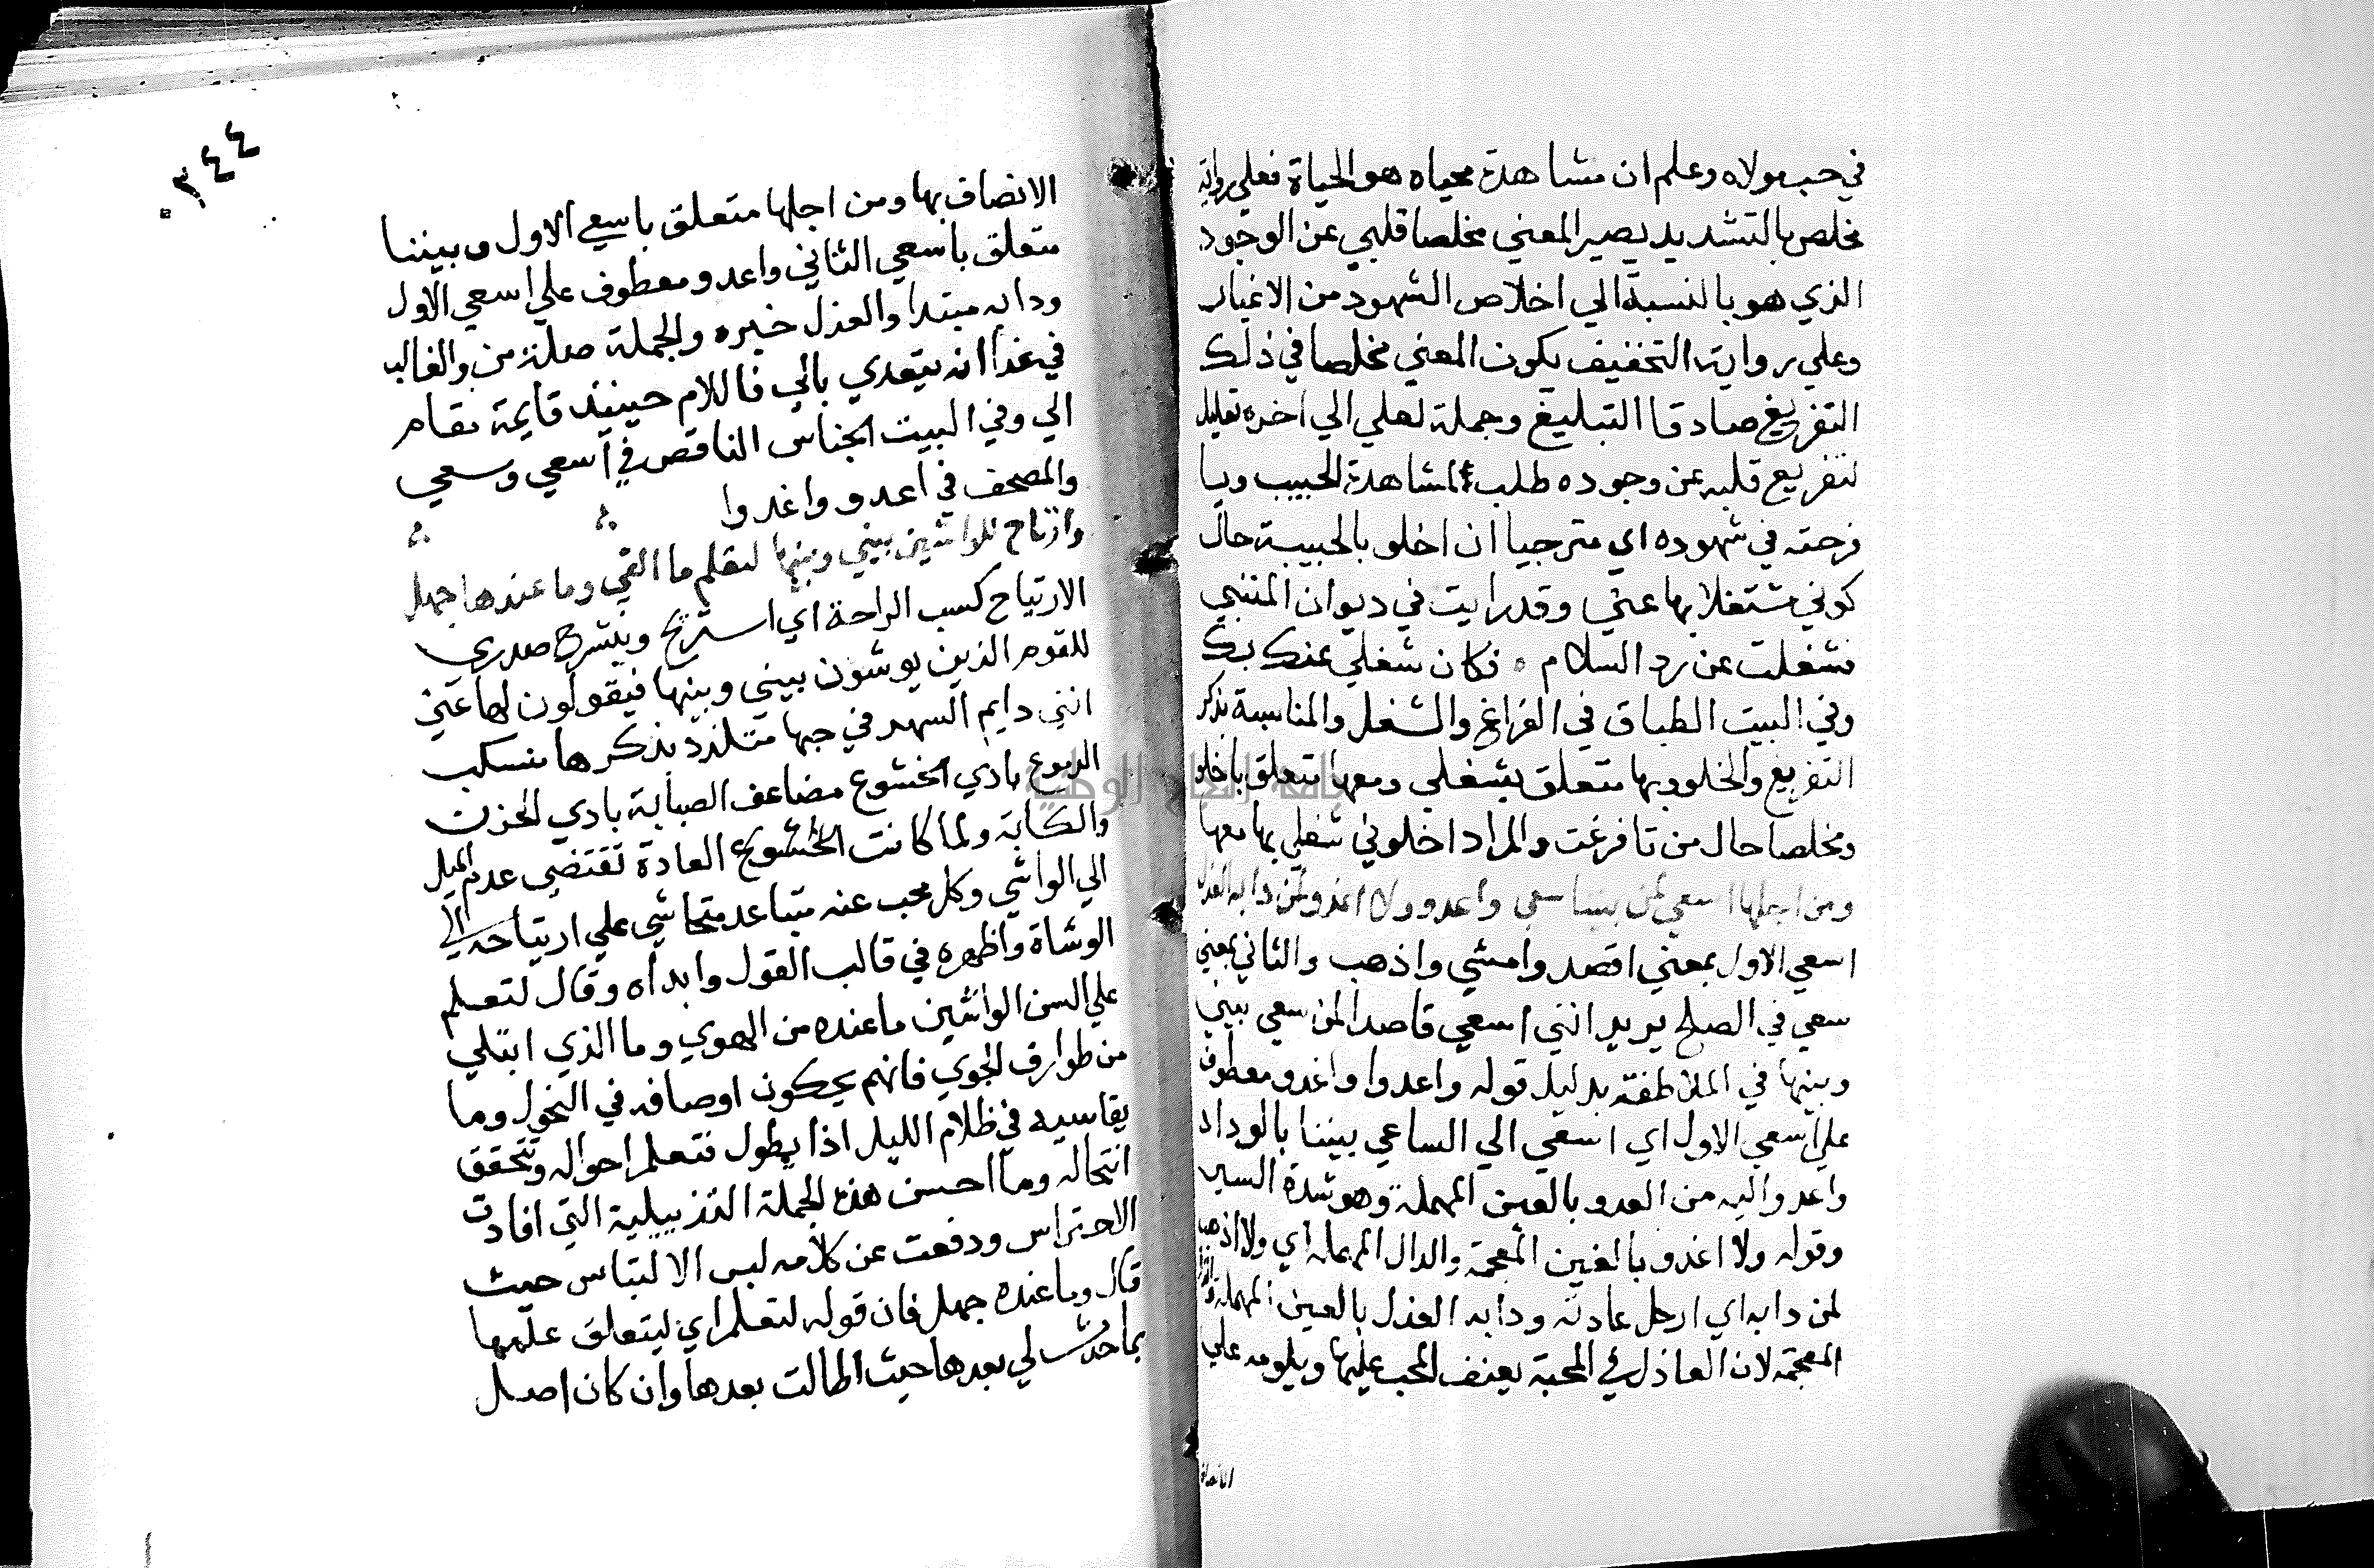 في حب مولاه وعلم ان مشاهدة محياه هو الحياة فعلي رواية
مخلص بالتشديد يصير المعني مخلصا قلبي عن الوجود
الذي هو بالنسبة الي اخلاص الشهود من الاغيار
وعلي رواية التخفيف يكون المعني مخلصا في ذلك
التفريغ صادقا التبليغ وجملة لعلي الي اخره تعليل
لتفريع قلبه عن وجوده طلبا لمشاهدة الحبيب ويا
فرحته في شهوده اي مترجيا ان اخلو بالحبيبة حال
كوني مشتغلا بها عني وقد رايت في ديوان المتنبي
شغلت عن رد السلام ۰ فكان شغلي عنك بك
وفي البيت الطباق في الفراغ والشغل والمناسبة بذكر
التفريغ والخلو وبها متعلق بشغلي ومعها متعلق باخلو
ومخلصا حال من تا فرغت والمراد اخلو في شغلي بها معها
ومن اجلها اسعي لمن بيننا سعي واعدو ولا اغدو لمن دابه العذل
اسعي الاول بمعني اقصد وامشي واذهب والثاني بمعني
سعي في الصلح يريد انني اسعي قاصدا لمن سعي بيني
وبينها في الملاطفة بدليل قوله واعدوا واغدو معطوف
علي اسعي الاول اي اسعي الي الساعي بيننا بالوداد
واعدو اليه من العدو بالعين المهملة وهو شدة السير
وقوله ولا اغدو بالغين المعجمة والدال المهملة اي ولا اذهب
لمن دابه اي ارحل عادته ودابه العذل بالعين المهملة والذال
المعجمة لان العاذل في المحبة يعنف المحب عليها ويلومه علي
الاتصاف
٣٤٤
الاتصاف بها ومن اجلها متعلق باسعي الاول وبيننا
متعلق باسعي الثاني واعدو معطوف علي اسعي الاول
ودابه مبتدا والعذل خبره والجملة صلة من والغالب
في غدا انه يتعدي بالي فاللام حينئذ قايمة مقام
الي وفي البيت الجناس الناقص في اسعي وسعي
والمصحف في اعدو واغدوا
وارتاح للواشين بيني وبينها لتعلم ما القي وما عندها جهل
الارتياح كسب الراحة اي استريح وينشرح صدري
للقوم الذين يوشون بيني وبينها فيقولون لها عني
انني دايم السهد في حبها متلذذ بذكرها منسكب
الدموع بادي الخشوع مضاعف الصبابة بادي الحزن
والكابة ولما كانت العادة تقتضي عدم الميل
الي الواشي وكل محب عنه متباعد متحاشي علي ارتياحه الي
الوشاة واظهره في قالب القول وابداه وقال لتعلم
علي السن الواشين ما عنده من الهوي وما الذي ابتلي
من طوارف الجوي فانهم يحكون اوصافه في النحول وما
يقاسيه في ظلام الليل اذا يطول فتعلم احواله وتتحقق
انتحاله وما احسن هذه الجملة التذييلية التي افادت
الاحتراس ودفعت عن كلامه لبس الالتباس حيث
قال وما عنده جهل فان قوله لتعلم اي ليتعلق علمها
بما حدث لي بعدها حيث اطالت بعدها وان كان اصل